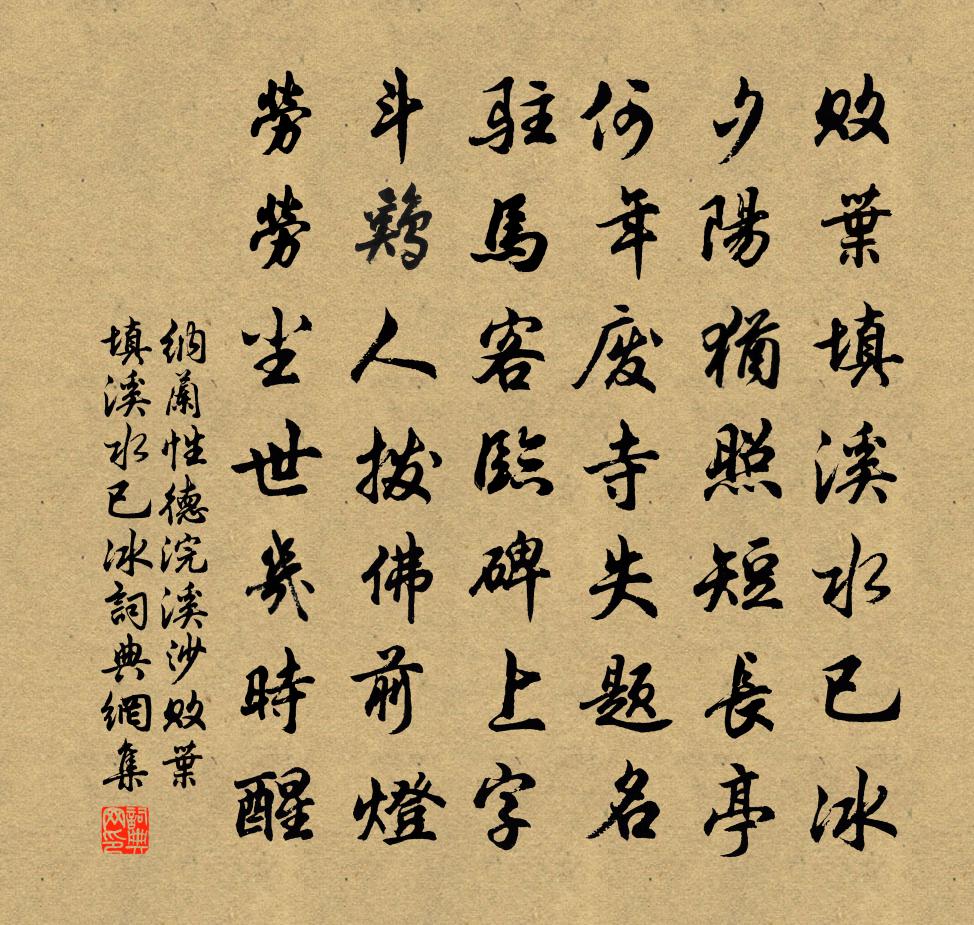 败葉填溪水已冰
夕陽猶照短長亭
何年废寺失题名
駐馬客臨碑上字
斗鷄人拨佛前燈
勞勞尘世幾時醒
納蘭性德浣溪沙败葉
填溪水已冰詞典網集
詞典网印